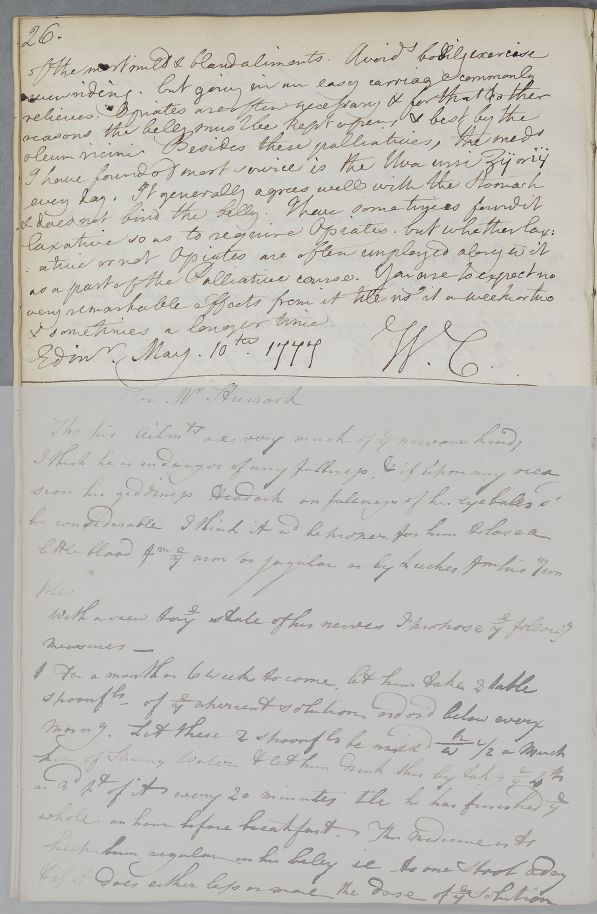 26.
of the most mild & bland aliments. Avoid bodily exercise
even riding. but going in an easy carriage commonly
relieves. Opiates are often necessary & for that & other
reasons the belly must be kept open, & best by the
oleum ricini. Besides these palliatives, the medn
I have found of most service is the Uva ursi
every day. It generally agrees well with the Stomach
& does not bind the belly. I have sometimes found it
laxative so as to require Opiates. but whether lax:
ative or not Opiates are often employed along wt it
as a part of the Palliative course. You are to expect no
very remarkable effects from it till it a week or two
& sometimes a longer time
Edinr. May. 10th 1777 W. C.
For Mr Sturrock
Tho his ailmts are very much of ye nervous kind,
I think he is in danger of any fullness, & if upon any occa
sion his giddiness Headach or fullness of his eyeballs sd
be considerable I think it wd be proper for him to lose a
little blood fm ye arm or jugular or by Leeches fm his Tem
ples
With a view to ye state of his nerves I propose ye followg
measures —
1 For a month or 6 weeks to come, let him take 2 table
spoonfls of ye aperient solution ordrd below every
morng. Let these 2 spoonfls be mixd wh 1/2 a Mutch
kin of Spring Water & let him drink this by takg ye
pt of it every 20 minutes till he has finished ye
whole an hour before breakfast. This medicine is to
keep him regular in his belly ie to one stool a day
& if it does either less or more the dose of ye solution